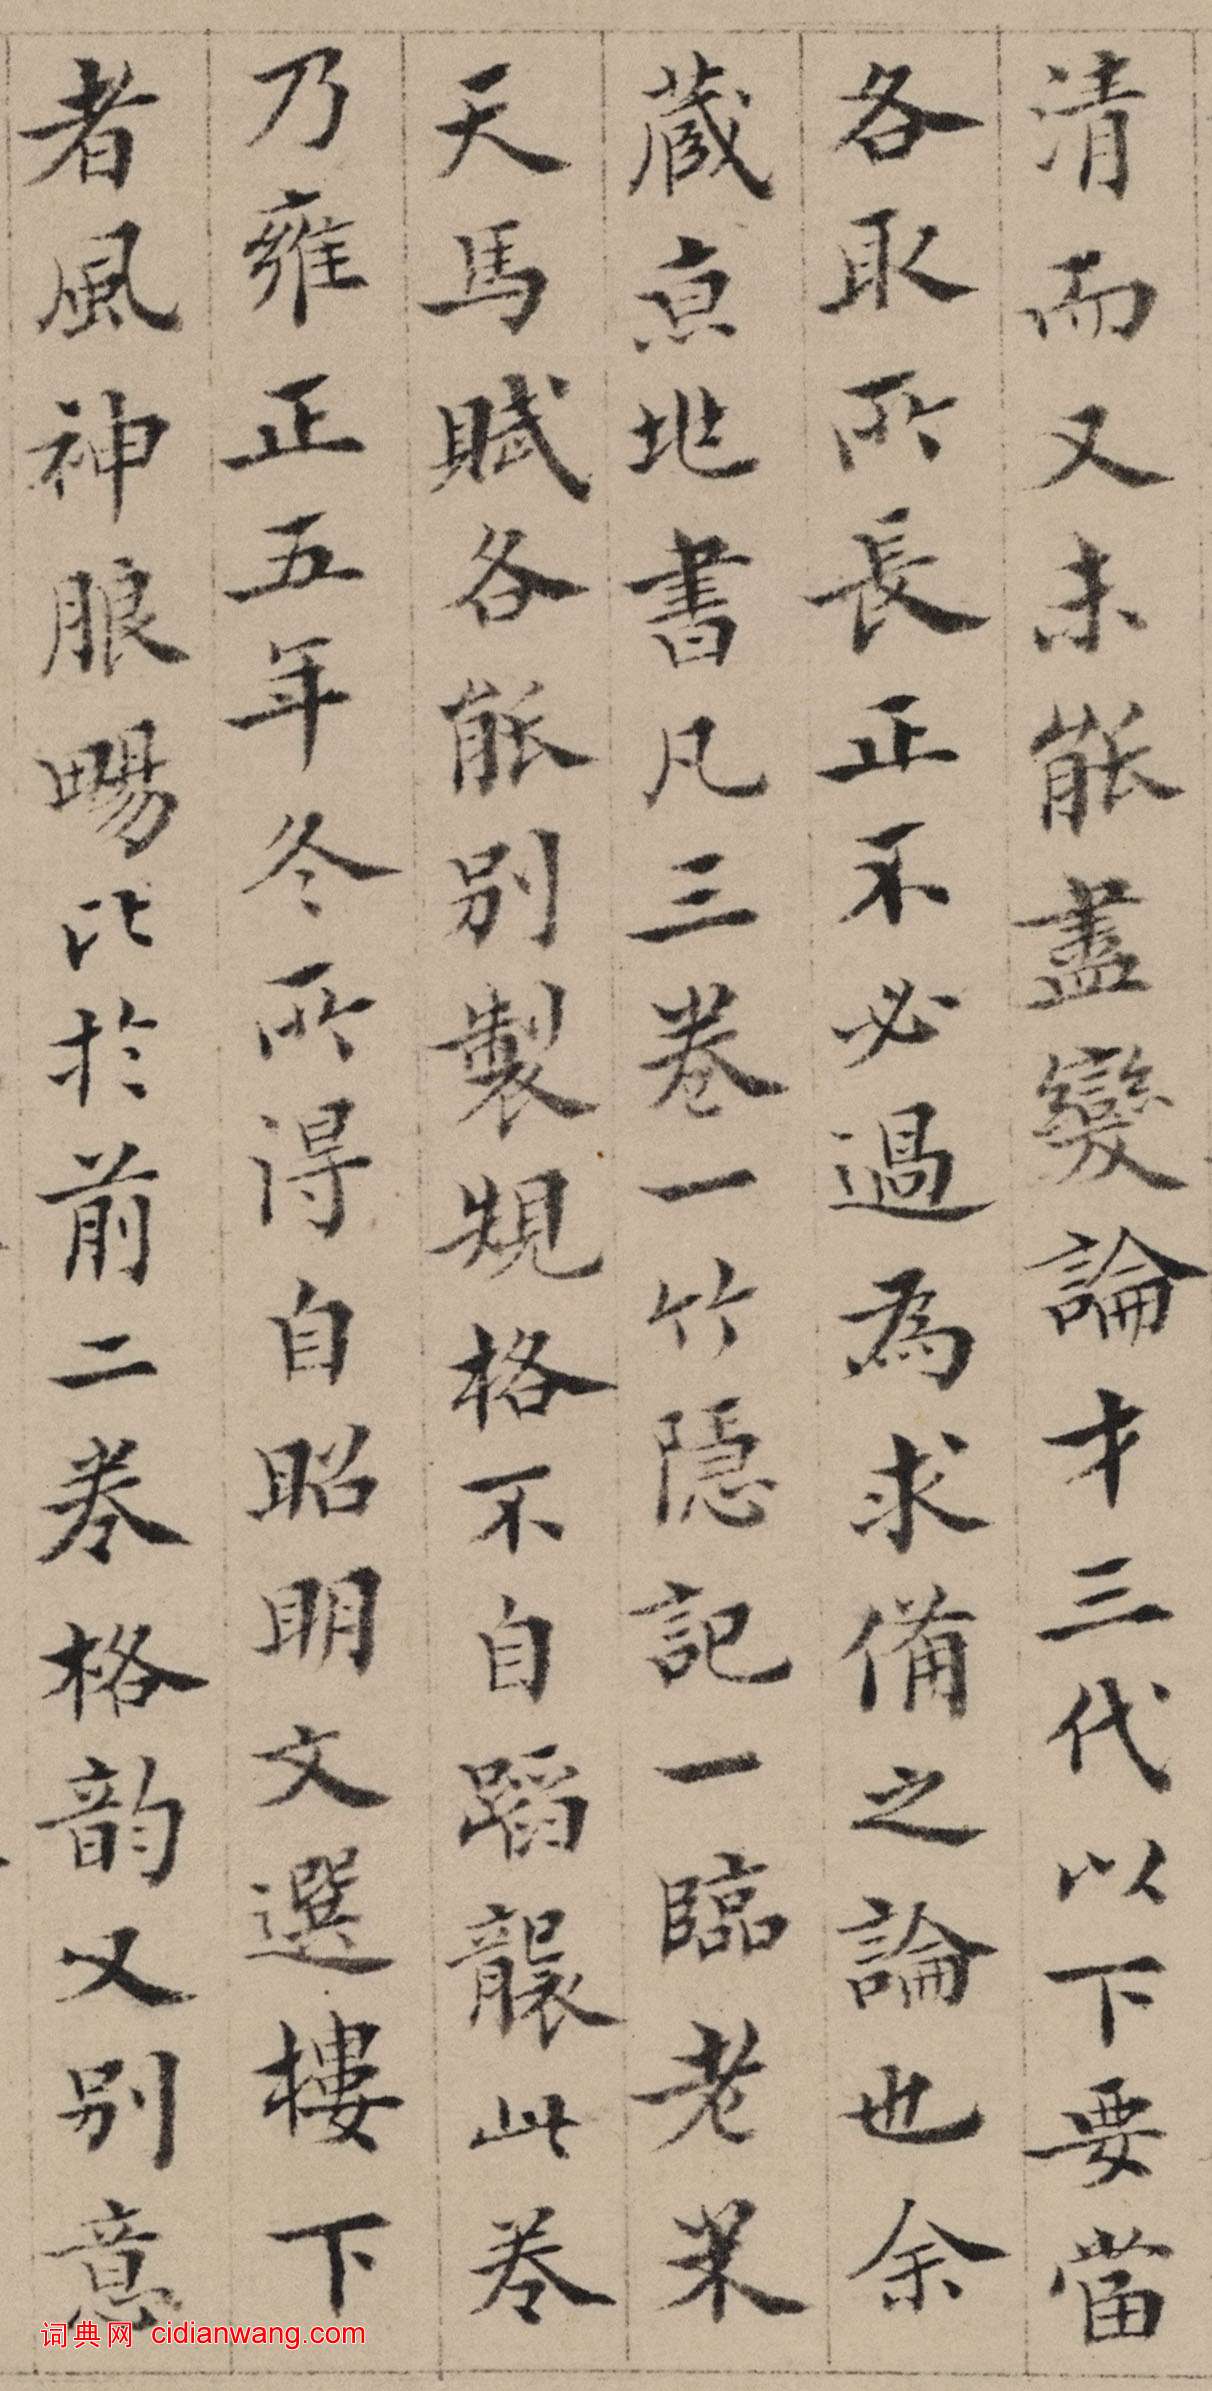 清而又未能盡變論才三代以下要當
各取所長正不必過為求備之論也余
藏京地書凡三卷一竹隱記一臨老米
天馬賦各能別製規格不自蹈襲此卷
乃雍正五年冬所得自昭明文選樓下
者風神朖畼比於前二卷格韵又別意
词典网 cidianwang.com